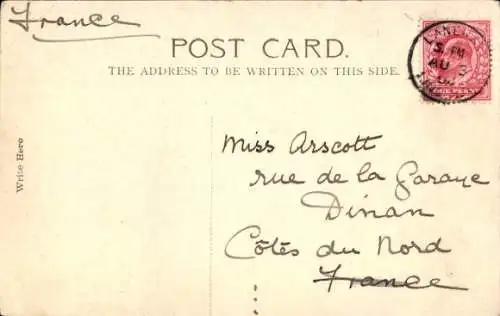 France
POST CARD.
THE ADDRESS TO BE WRITTEN ON THIS SIDE.
S PM
AU 3
ONE PENNY
Write Here
Miss Arscott
rue de la Garaye
Dinan
Côtes du Nord
France